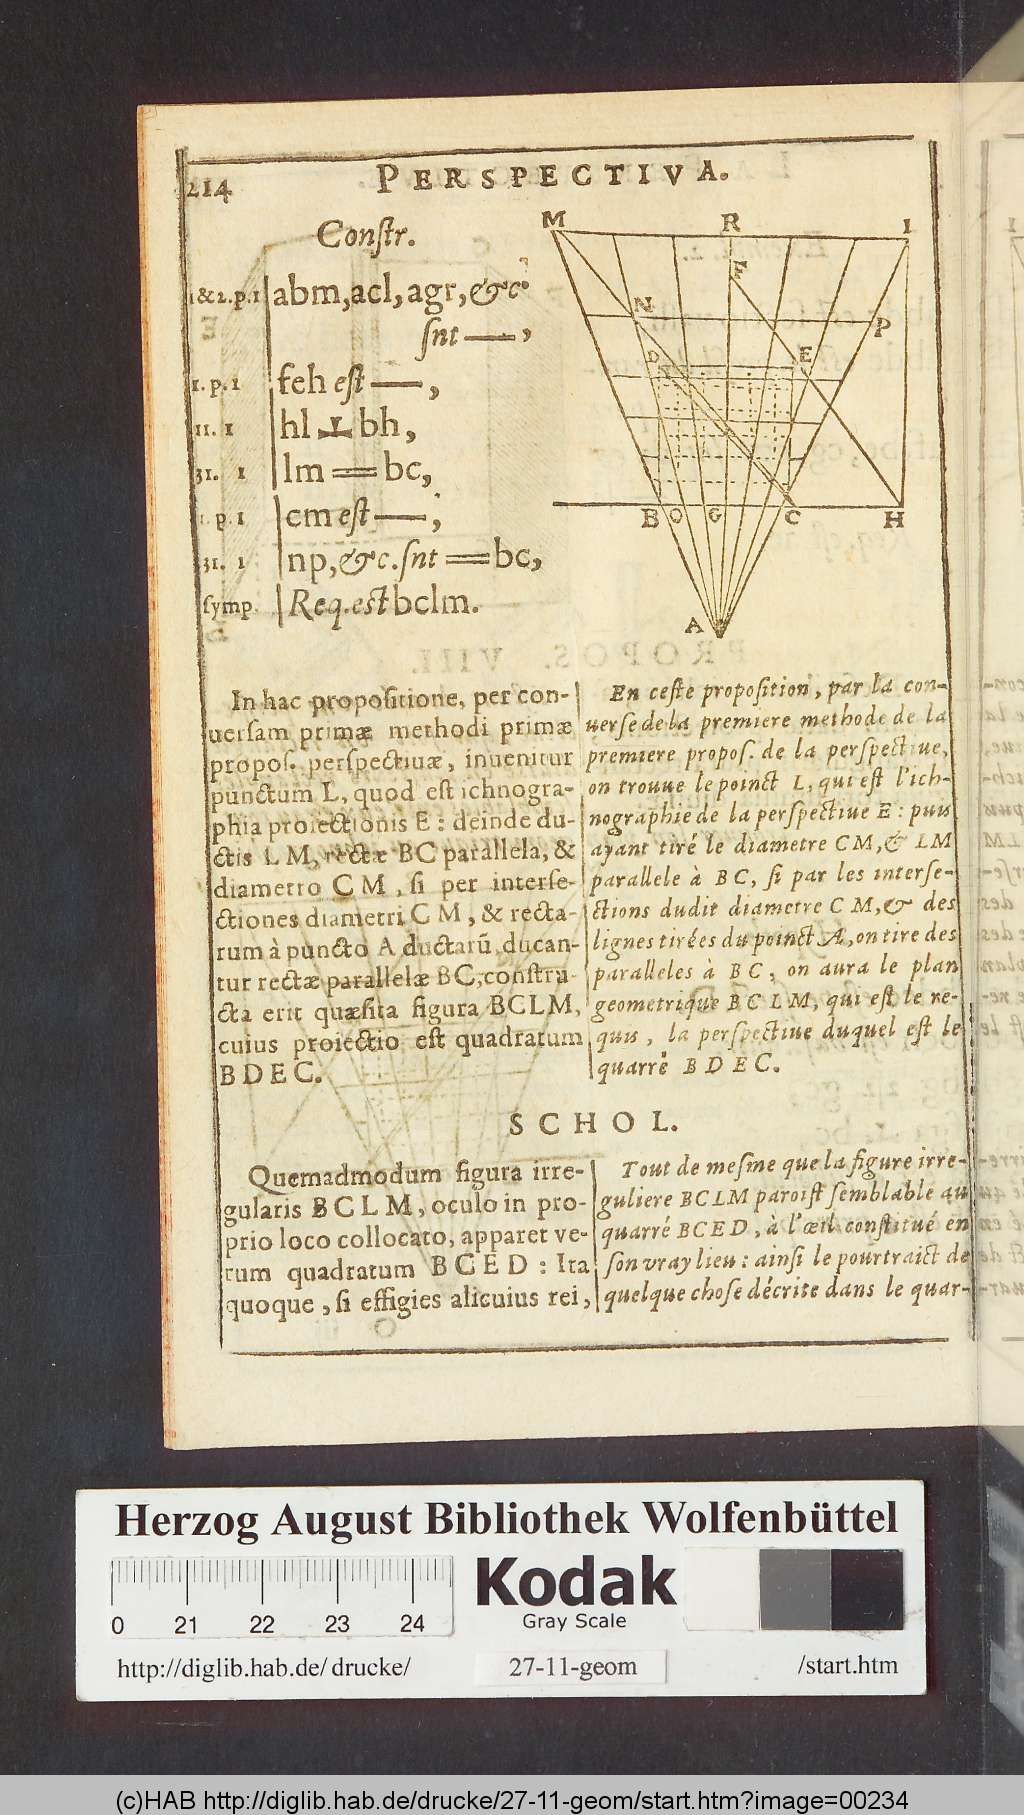 214
PERSPECTIVA.
Conſtr.
1&2.p.1 abm,acl,agr,&c.
ſnt —,
1.p.1 feh eſt —,
11. 1 hl ⊥ bh,
31. 1 lm = bc,
1.p.1 cm eſt —,
31. 1 np,&c.ſnt = bc,
ſymp. Req.eſt bclm.
M R I
F
N P
D E
B O G C H
A
In hac propoſitione, per con-
uerſam primæ methodi primæ
propoſ. perſpectiuæ, inuenitur
punctum L, quod eſt ichnogra-
phia proiectionis E : deinde du-
ctis L M, rectæ BC parallela, &
diametro C M , ſi per interſe-
ctiones diametri C M , & recta-
rum à puncto A ductarũ, ducan-
tur rectæ parallelæ BC, conſtru-
cta erit quæſita figura BCLM,
cuius proiectio eſt quadratum
B D E C.
En ceſte propoſition, par la con-
uerſe de la premiere methode de la
premiere propoſ. de la perſpectiue,
on trouue le poinct L, qui eſt l'ich-
nographie de la perſpectiue E : puis
ayant tiré le diametre CM, & LM
parallele à BC, ſi par les interſe-
ctions dudit diametre C M, & des
lignes tirées du poinct A, on tire des
paralleles à BC, on aura le plan
geometrique BCLM, qui eſt le re-
quis, la perſpectiue duquel eſt le
quarré B D E C.
SCHOL.
Quemadmodum figura irre-
gularis B C L M, oculo in pro-
prio loco collocato, apparet ve-
rum quadratum B C E D : Ita
quoque , ſi effigies alicuius rei,
Tout de meſme que la figure irre-
guliere BCLM paroiſt ſemblable au
quarré BCED, à l'œil conſtitué en
ſon vray lieu : ainſi le pourtraict de
quelque choſe décrite dans le quar-
Herzog August Bibliothek Wolfenbüttel
Kodak
Gray Scale
0 21 22 23 24
http://diglib.hab.de/drucke/ 27-11-geom /start.htm
(c)HAB http://diglib.hab.de/drucke/27-11-geom/start.htm?image=00234